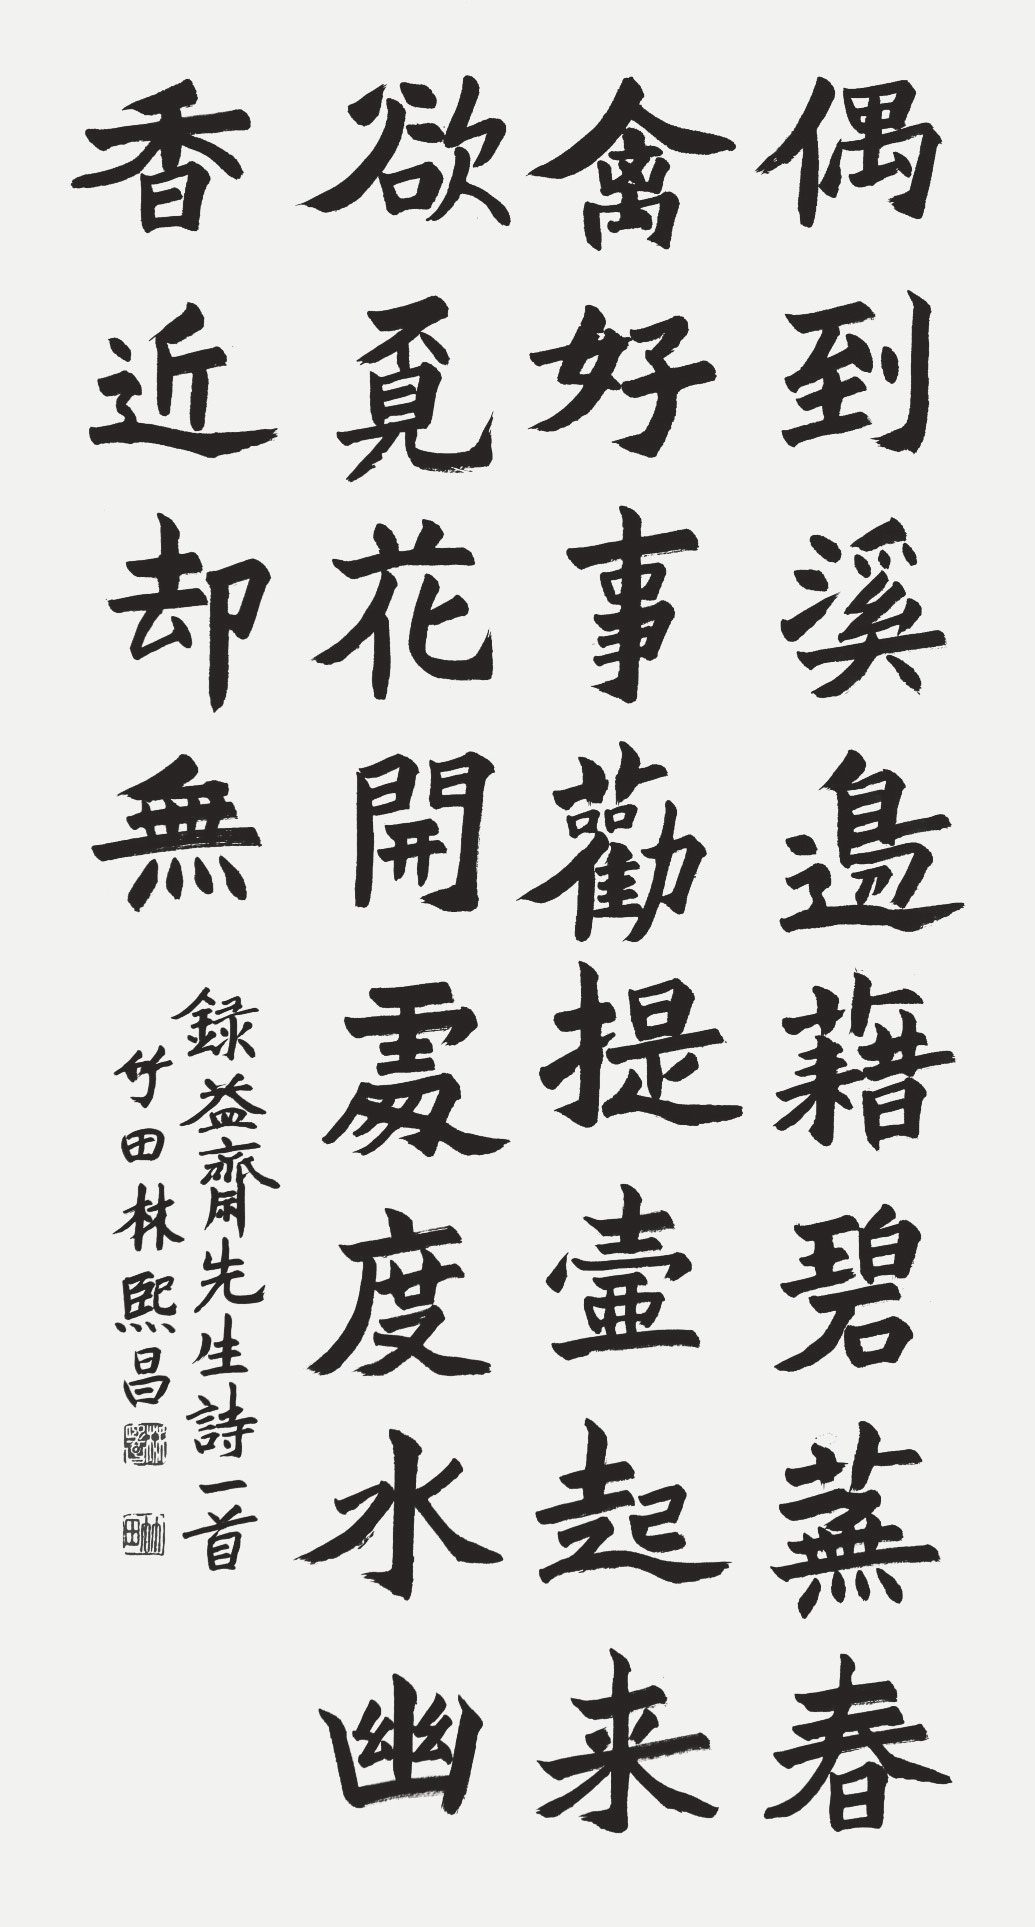 偶到溪邊藉碧蕪春
禽好事勸提壷起来
欲覔花開處度水幽
香近却無
録益齋先生詩一首
竹田林熙昌
竹田